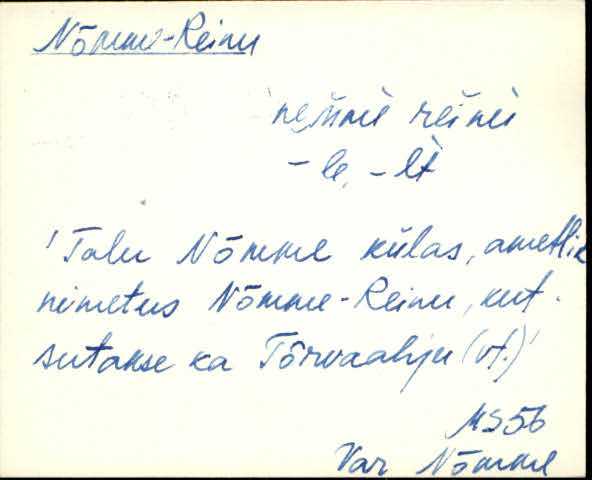 Nõmme-Reinu
-le, -lt
'Talu Nõmme külas, ametlik
nimetus Nõmme-Reinu, kut-
sutakse ka Tõrvaahju (vt.)'
MS56
Var Nõmme